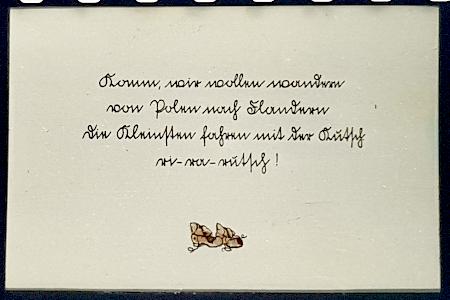 Komm, wir wollen wandern
von Polen nach Flandern
die Kleinsten fahren mit der Kutsch
ri-ra-rutsch!